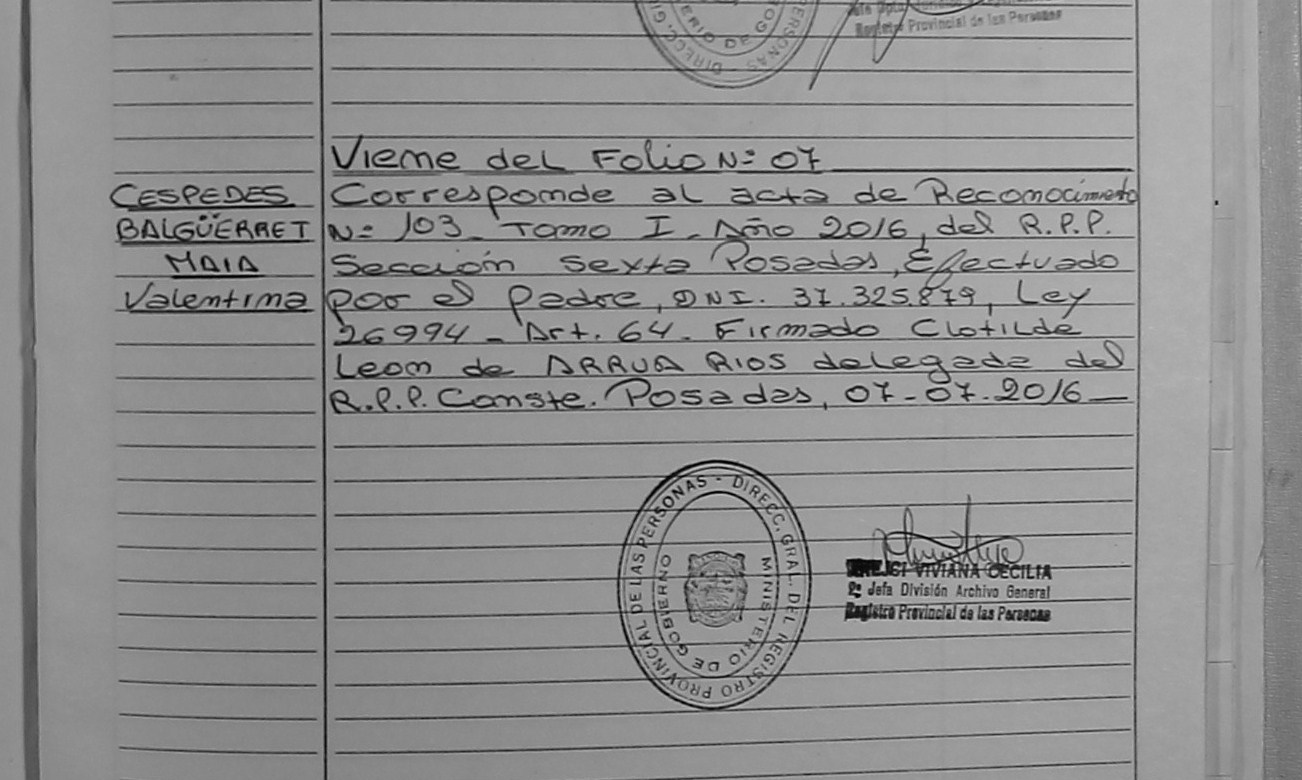 Registro Provincial de las Personas
DIRECC. GR
PERSONAS
ERIO DE GO
Vieme del Folio Nº 07
CESPEDES
BALGÜERRET
MAIA
Valentima
Correspomde al acta de Reconocimiento
Nº 103 - Tomo I - Año 2016, del R.P.P.
Sección Sexta Posadas, Efectuado
por el padre, DNI. 37.325.879, Ley
26994 - Art. 64 - Firmado Clotilde
Leom de ARRUA RIOS delegada del
R.P.P. Comste. Posadas, 07-07-2016
REGISTRO PROVINCIAL DE LAS PERSONAS - DIRECC. GRAL. DEL
MINISTERIO DE GOBIERNO
VIVIANA CECILIA
2º Jefa División Archivo General
Registro Provincial de las Personas